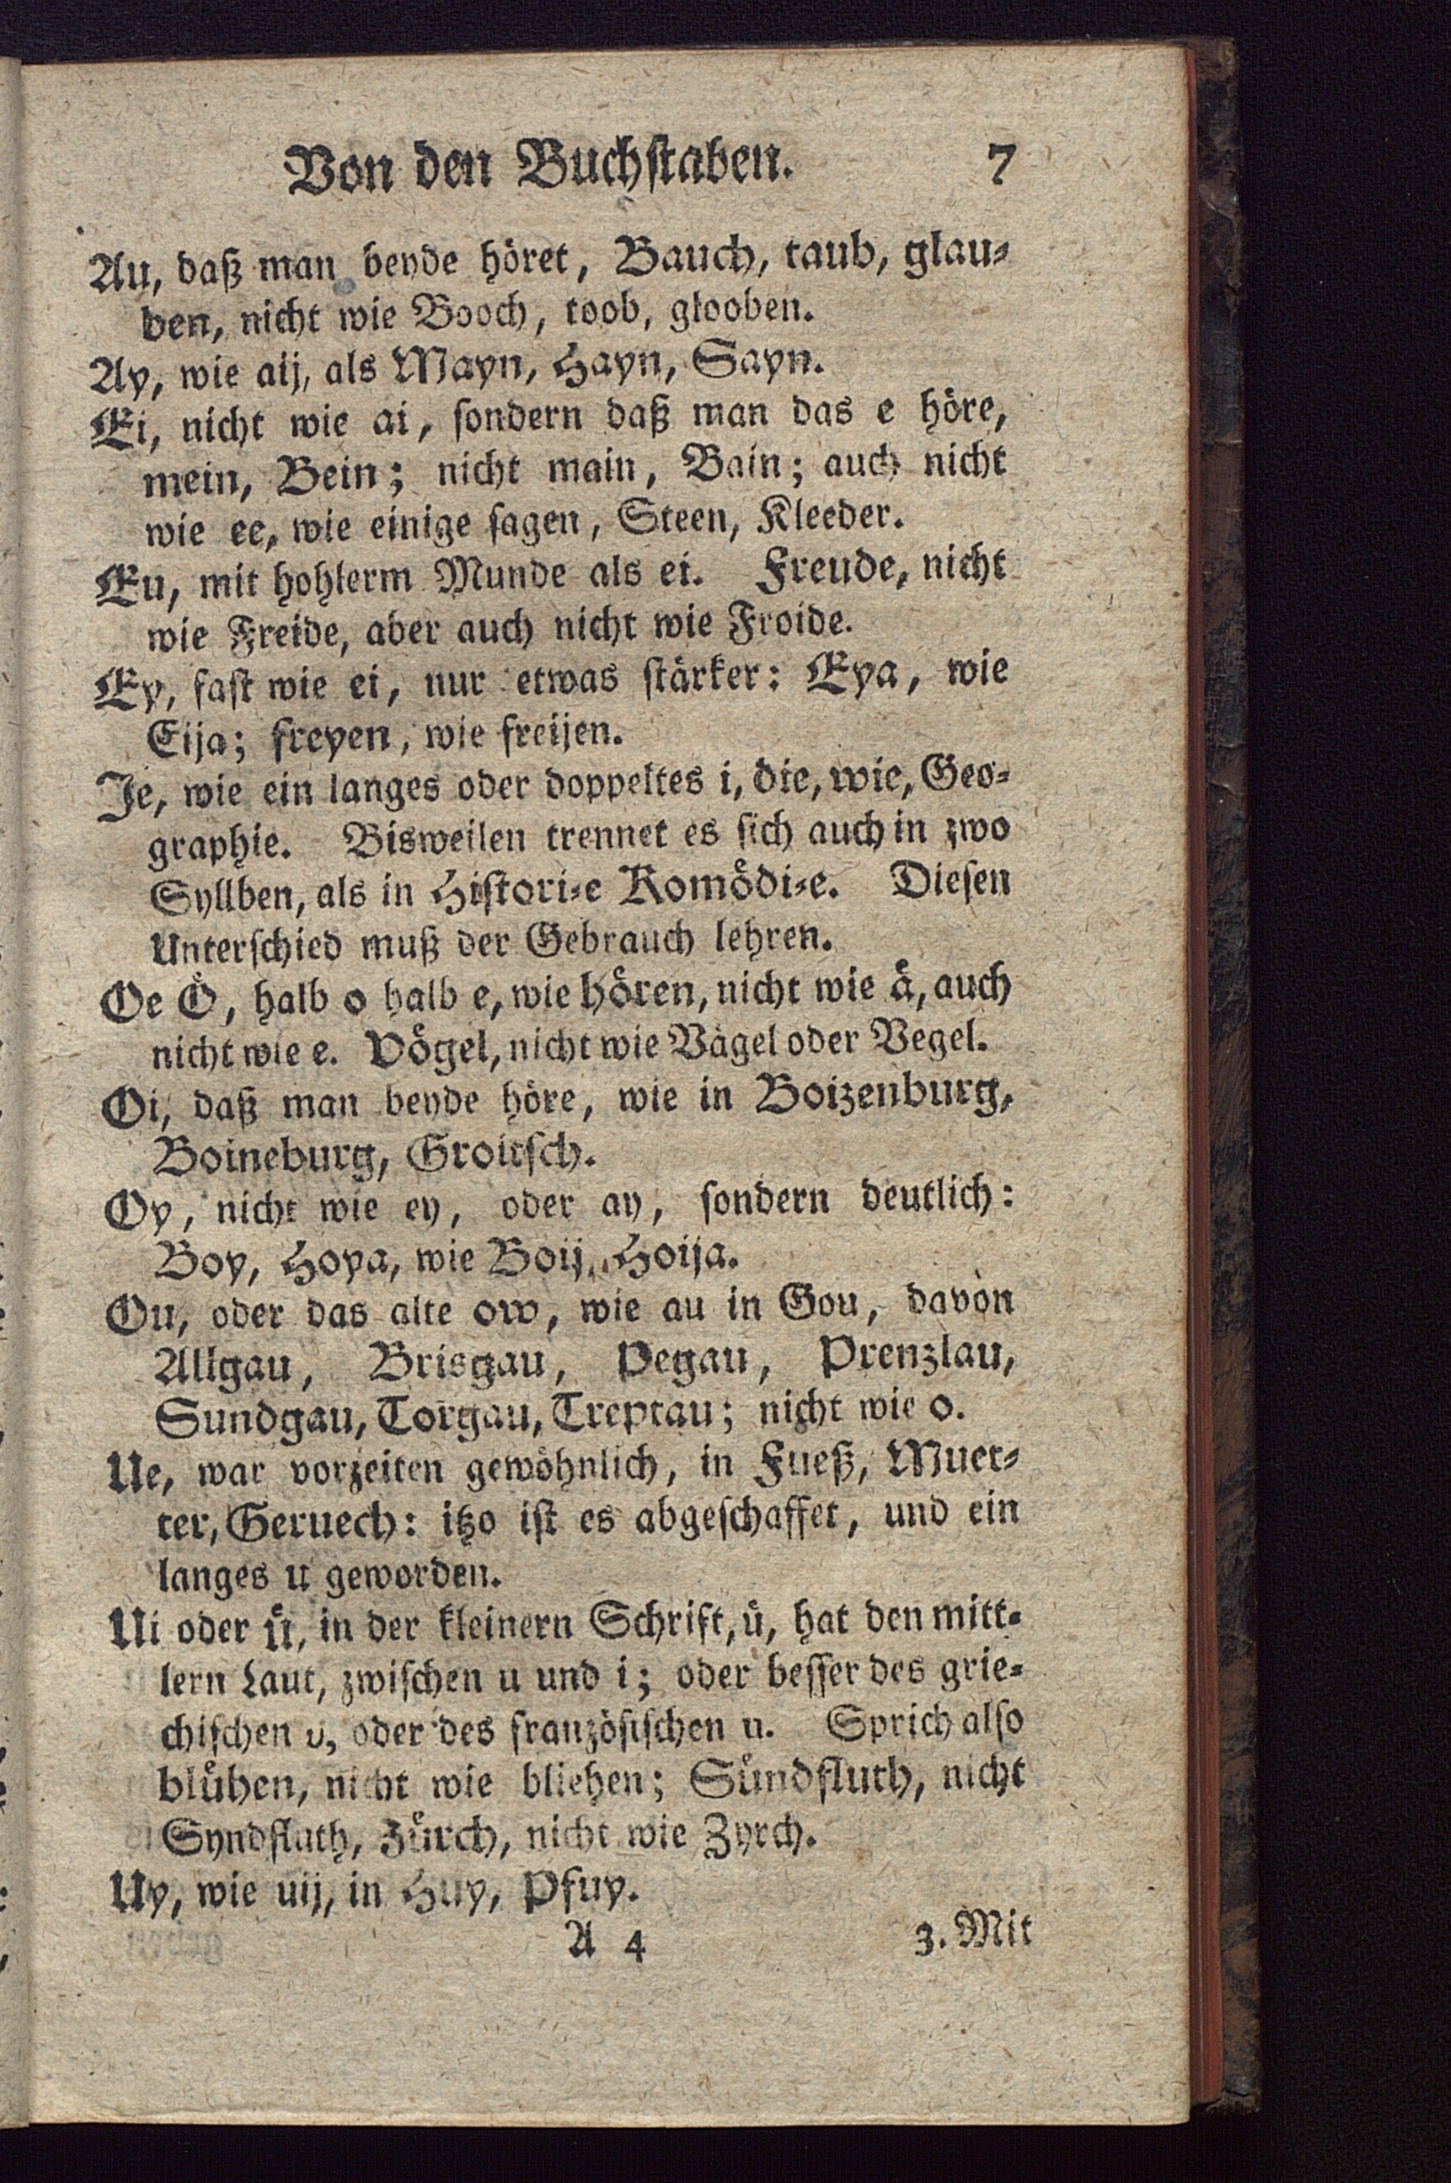 Von den Buchſtaben. 7
Au, daß man beyde höret, Bauch, taub, glau⸗
ben, nicht wie Booch, toob, glooben.
Ay, wie aij, als Mayn, Hayn, Sayn.
Ei, nicht wie ai, ſondern daß man das e höre,
mein, Bein; nicht main, Bain; auch nicht
wie ee, wie einige ſagen, Steen, Kleeder.
Eu, mit hohlerm Munde als ei. Freude, nicht
wie Freide, aber auch nicht wie Froide.
Ey, faſt wie ei, nur etwas ſtärker: Eya, wie
Eija; freyen, wie freijen.
Je, wie ein langes oder doppeltes i, die, wie, Geo⸗
graphie. Bisweilen trennet es ſich auch in zwo
Syllben, als in Hiſtori⸗e Komödi⸗e. Dieſen
Unterſchied muß der Gebrauch lehren.
Oe Ö, halb o halb e, wie hören, nicht wie ä, auch
nicht wie e. Vögel, nicht wie Vägel oder Vegel.
Oi, daß man beyde höre, wie in Boizenburg,
Boineburg, Groitſch.
Oy, nicht wie ey, oder ay, ſondern deutlich:
Boy, Hoya, wie Boij, Hoija.
Ou, oder das alte ow, wie au in Gou, davon
Allgau, Brisgau, Pegau, Prenzlau,
Sundgau, Torgau, Treptau; nicht wie o.
Ue, war vorzeiten gewöhnlich, in Fueß, Muet⸗
ter, Geruech: itzo iſt es abgeſchaffet, und ein
langes u geworden.
Ui oder ü, in der kleinern Schrift, ü, hat den mitt⸗
lern Laut, zwiſchen u und i; oder beſſer des grie⸗
chiſchen υ, oder des franzöſiſchen u. Sprich alſo
blühen, nicht wie bliehen; Sündfluth, nicht
Syndfluth, Zürch, nicht wie Zyrch.
Uy, wie uij, in Huy, Pfuy.
A 4 3. Mit